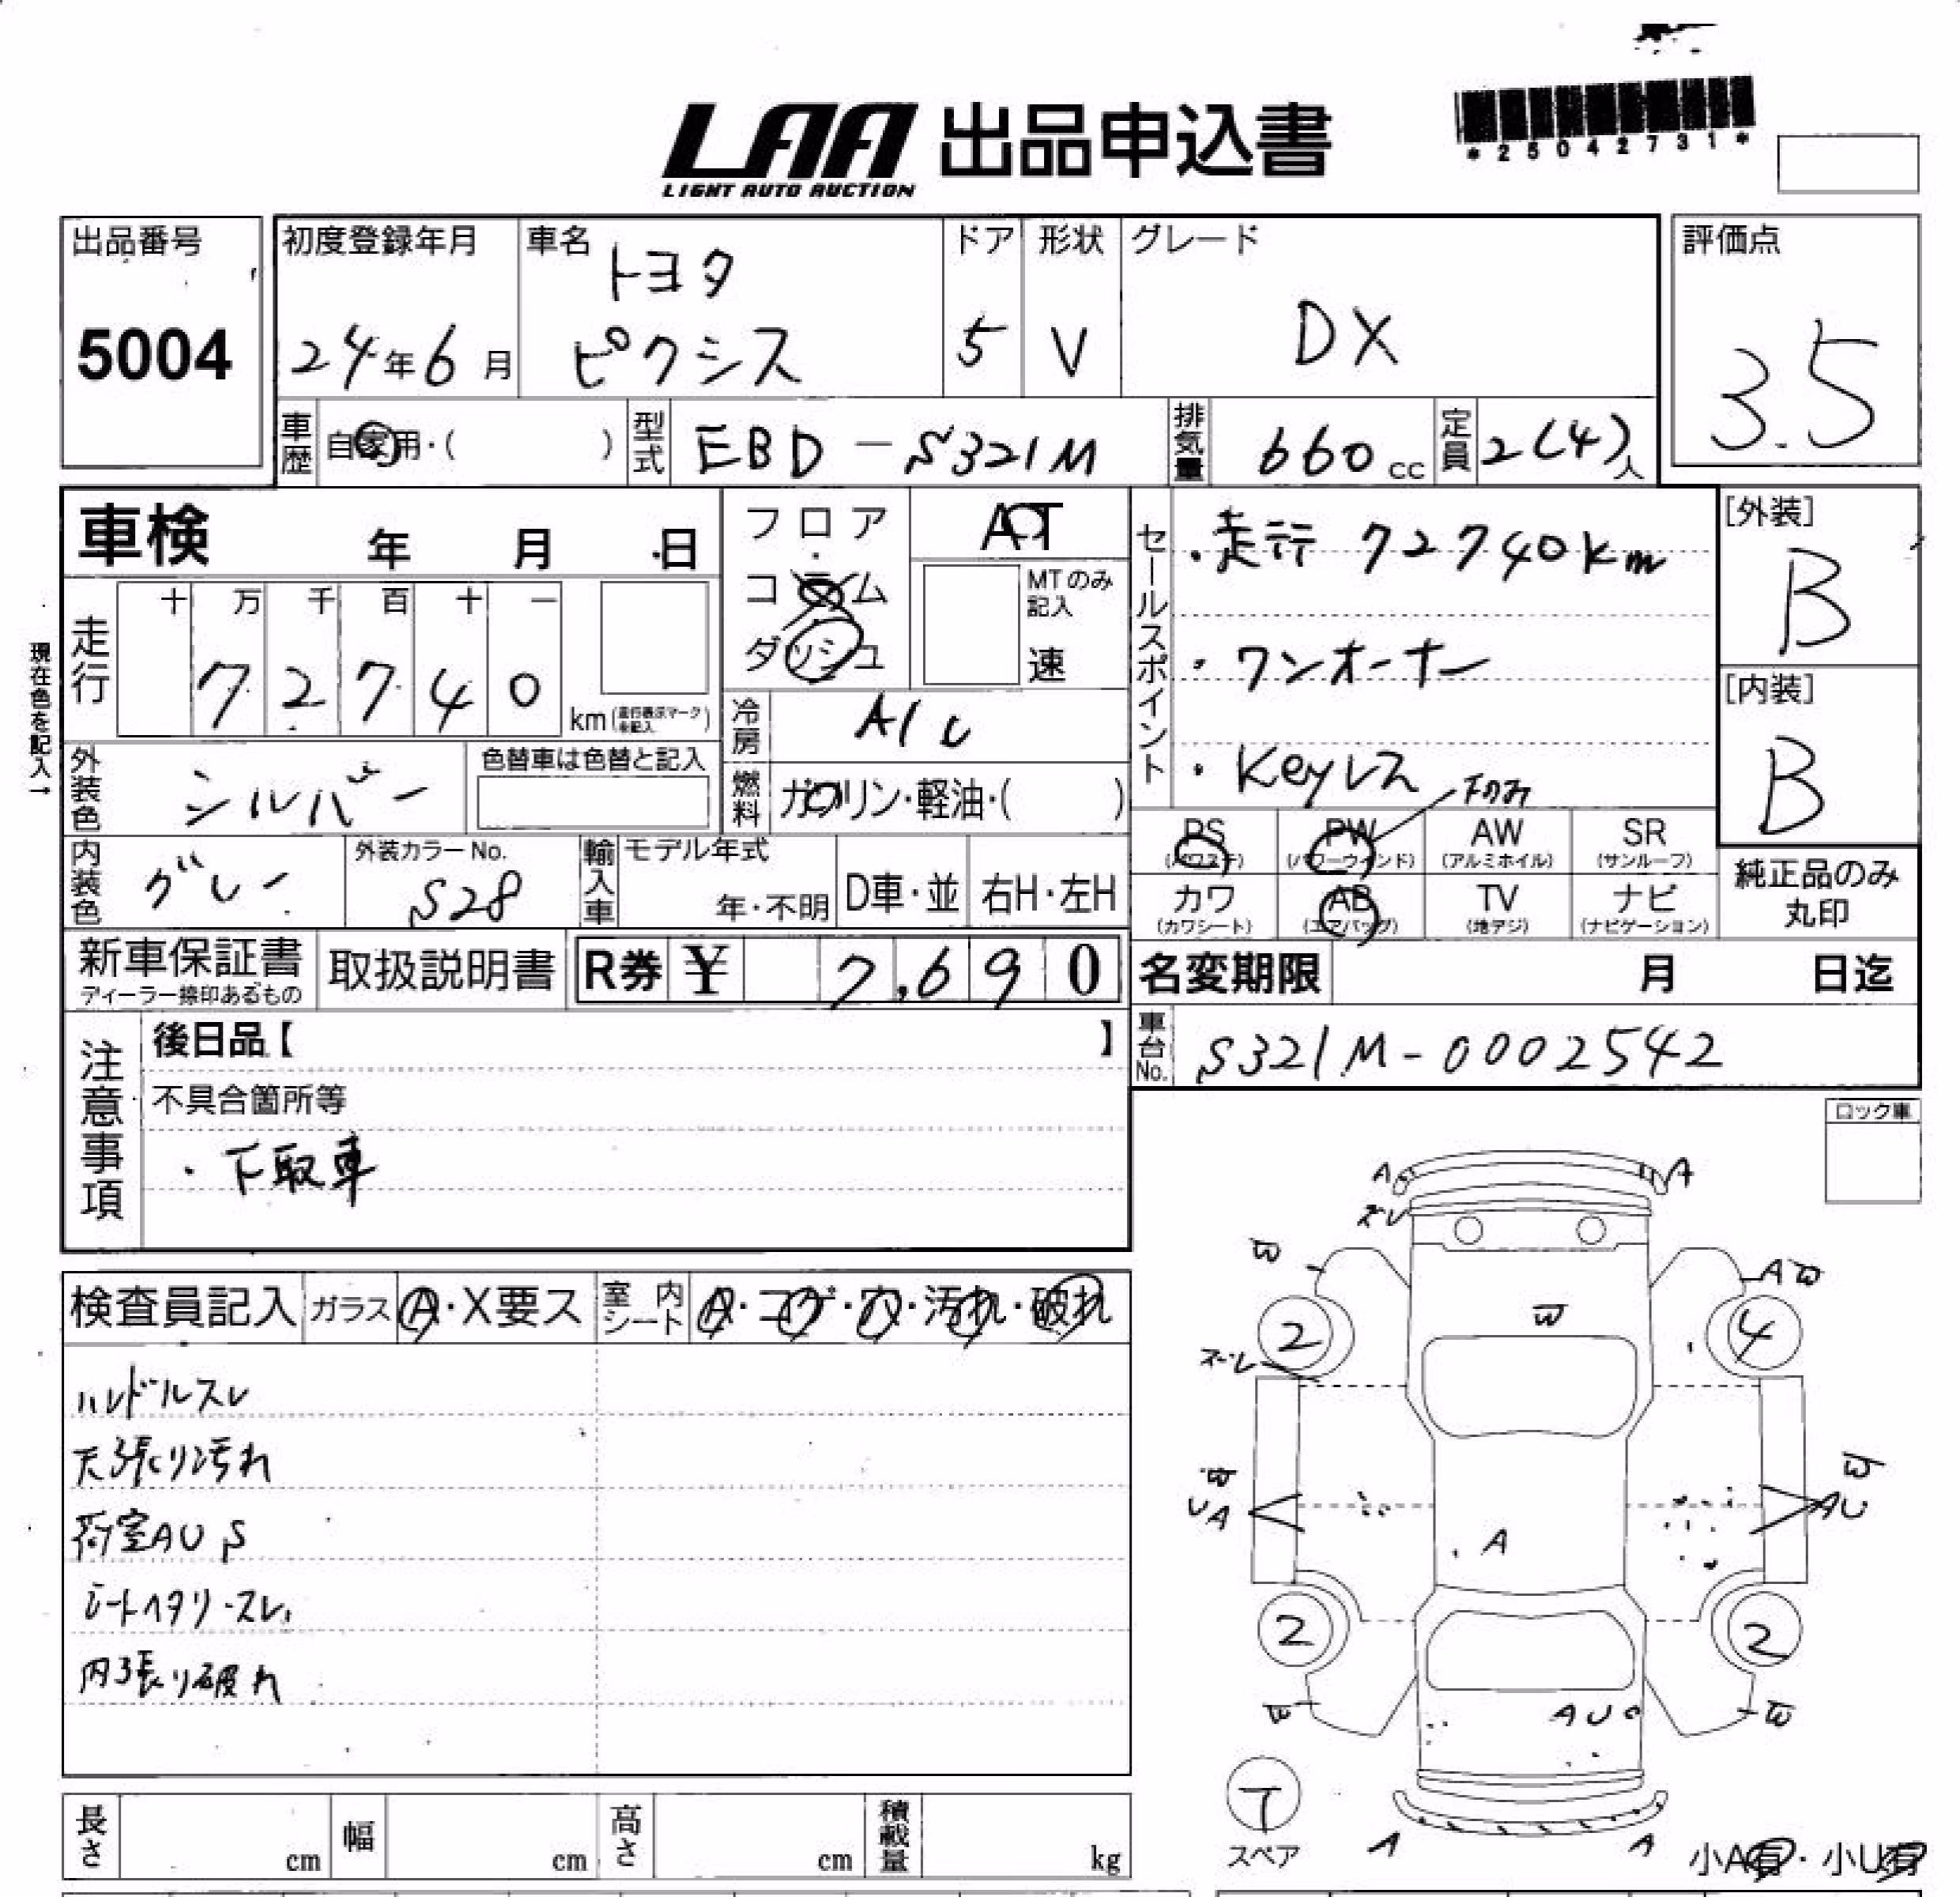 LAA 出品申込書
LIGHT AUTO AUCTION
*25042731*
出品番号
5004
初度登録年月
24年6月
車名
トヨタ
ピクシス
ドア
5
形状
V
グレード
DX
評価点
3.5
車歴
自家用・( )
型式
EBD-S321M
排気量
660cc
定員
2(4)人
車検 年 月 日
フロア
コラム
ダッシュ
AT
MTのみ記入
速
セールスポイント
・走行 72740km
・ワンオーナー
・Keyレス
下のみ
[外装]
B
[内装]
B
現在色を記入→
走行
十 万 千 百 十 一
7 2 7 4 0
km(走行表示マーク未記入)
冷房
A/C
燃料
ガソリン・軽油・( )
外装色
シルバー
色替車は色替と記入
内装色
グレー
外装カラーNo.
S28
輸入車
モデル年式
年・不明
D車・並
右H・左H
PS
(パワステ)
PW
(パワーウインド)
AW
(アルミホイル)
SR
(サンルーフ)
カワ
(カワシート)
AB
(エアバッグ)
TV
(地デジ)
ナビ
(ナビゲーション)
純正品のみ
丸印
新車保証書
ディーラー捺印あるもの
取扱説明書
R券 ¥ 7,690
名変期限 月 日迄
注意事項
後日品【 】
不具合箇所等
・下取車
車台No.
S321M-0002542
ロック車
検査員記入
ガラス
A・X要ス
室内シート
A・コゲ・穴・汚れ・破れ
ハンドルスレ
天張り汚れ
荷室AUS
シートヘタリ・スレ
内張り破れ
A A
ズレ
W AW
W
2 4
ズレ
W W
UA AU
A
2 2
W W
AU
T
スペア
A A
小A有・小U有
長さ cm
幅 cm
高さ cm
積載量 kg